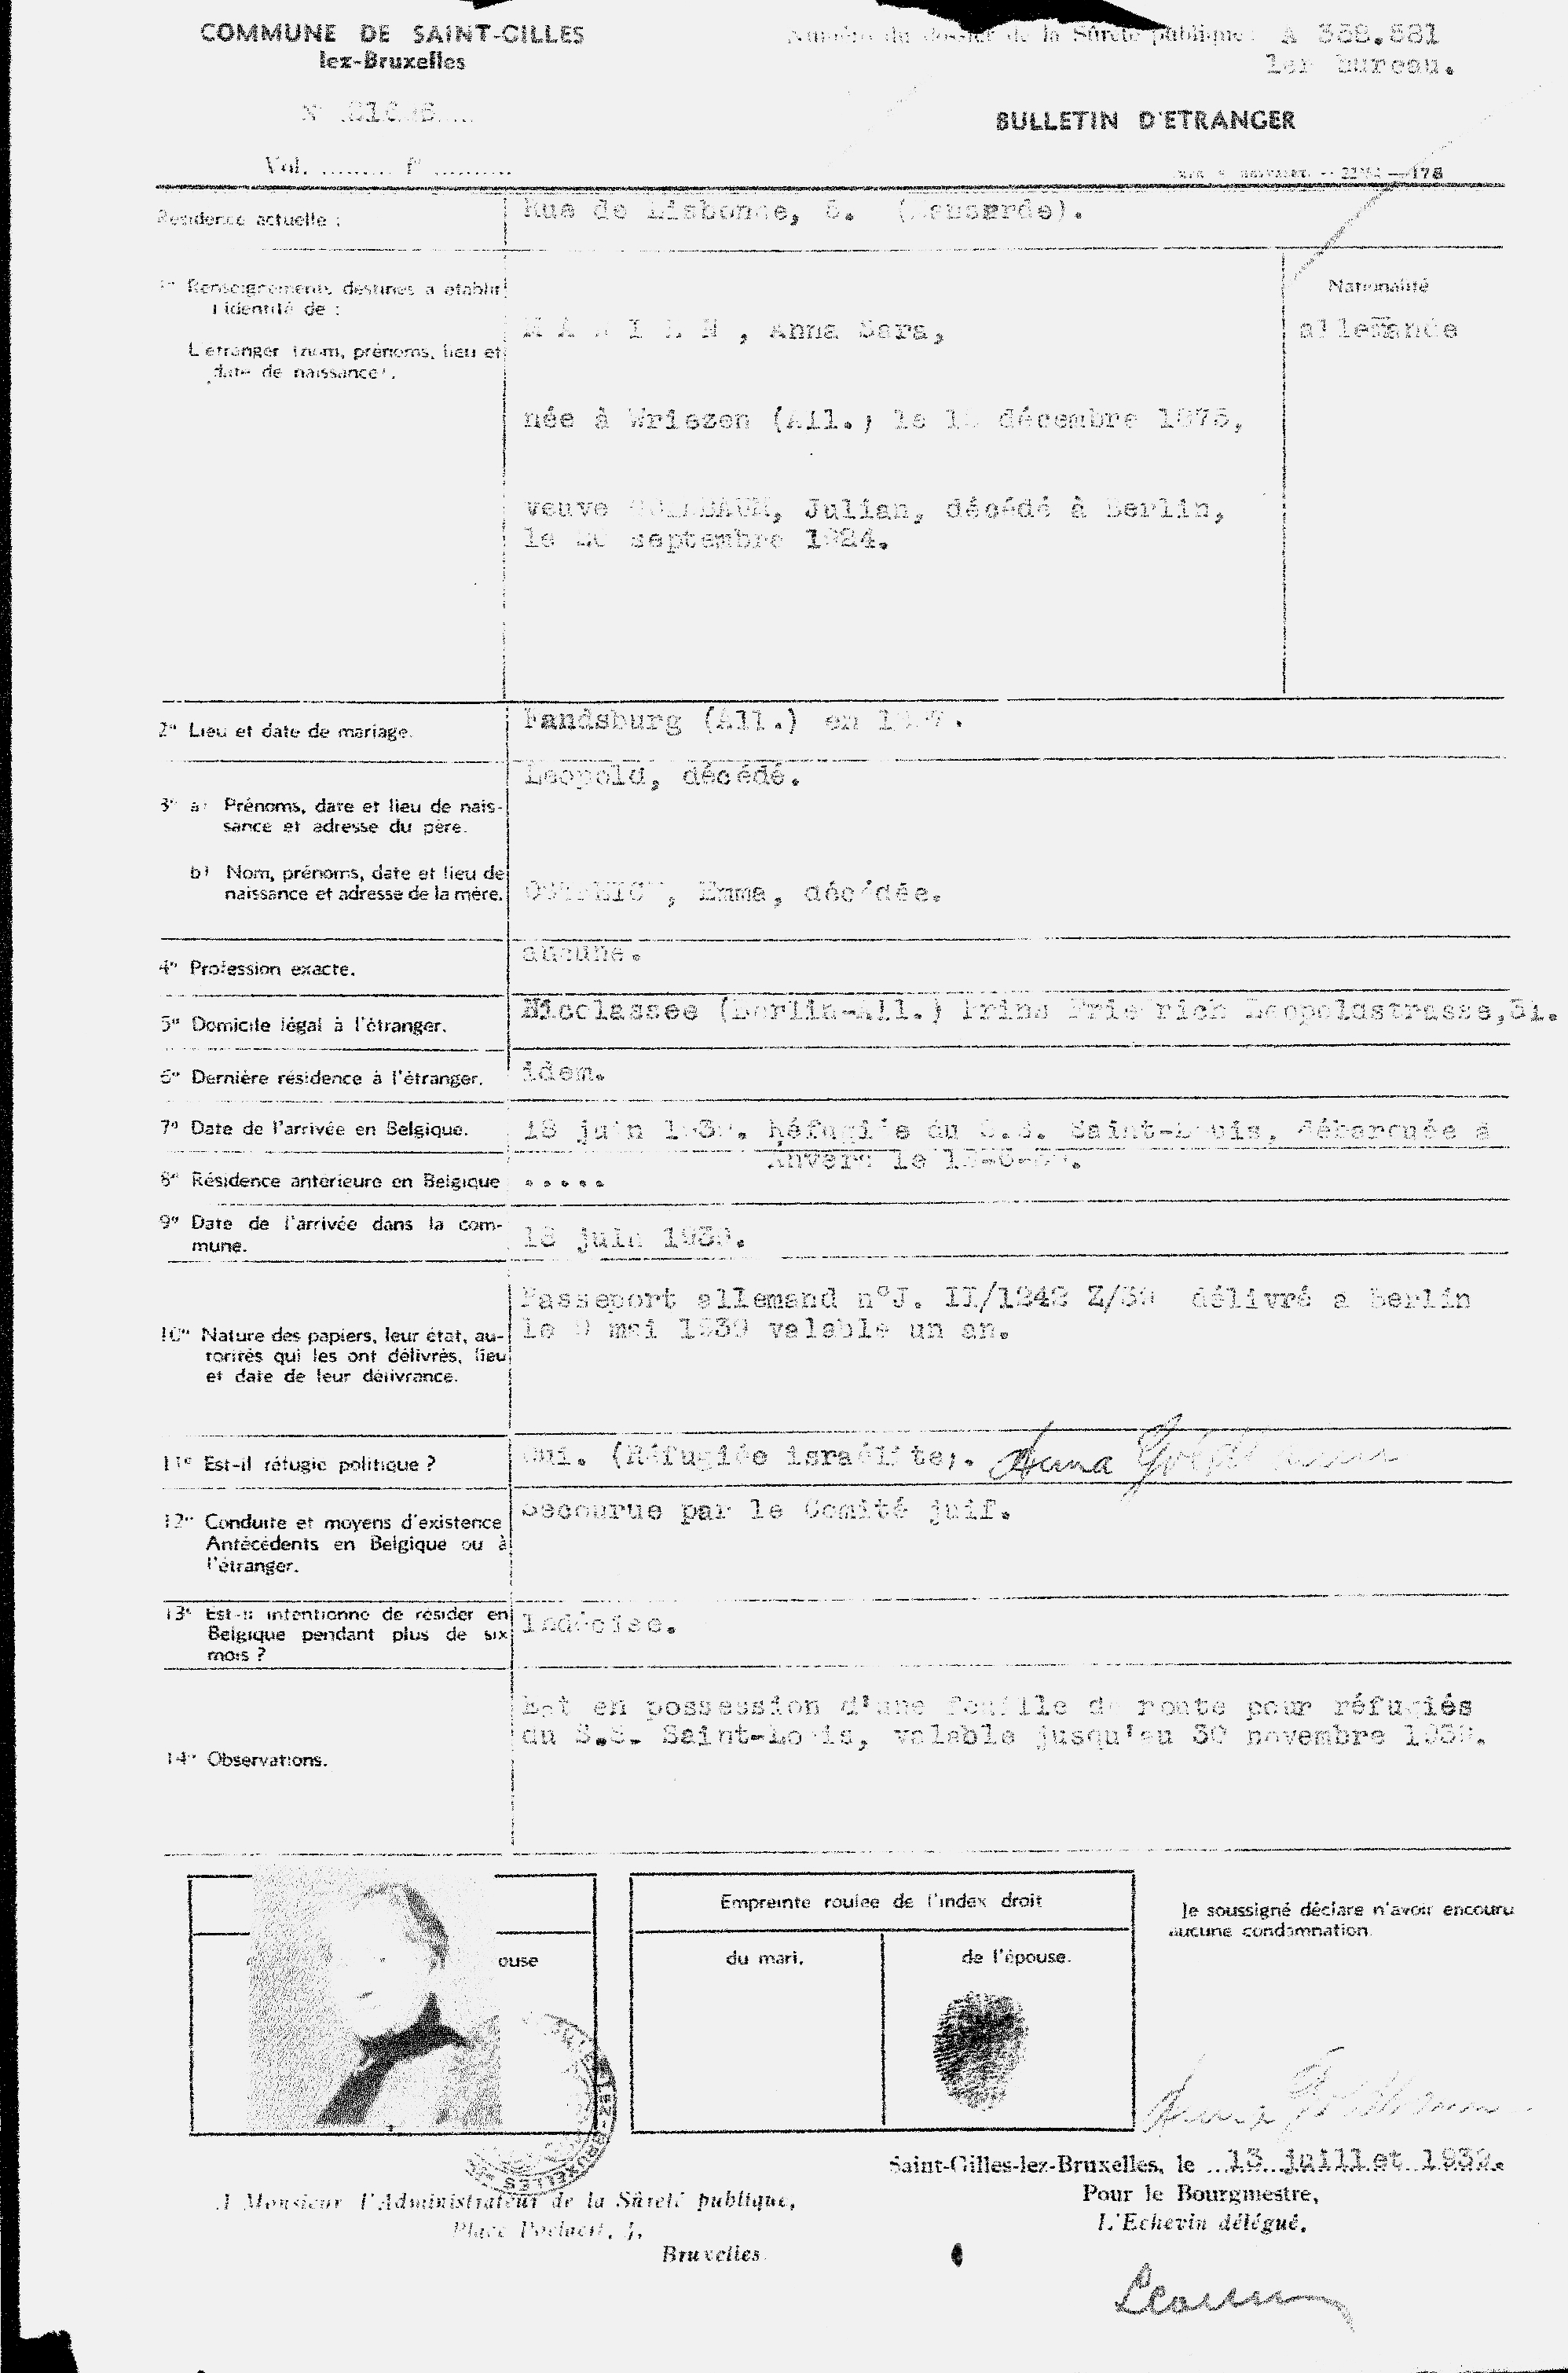 COMMUNE DE SAINT-GILLES
lez-Bruxelles
Numéro du dossier de la Sûreté publique: A 358.581
1er bureau.
N°
BULLETIN D'ETRANGER
Vol. ......... f° ..........
Résidence actuelle :
Rue de Lisbonne,
1° Renseignements destinés à établir
l'identité de :
L'étranger (nom, prénoms, lieu et
date de naissance).
Nationalité
allemande
, Anna Sara,
née à Wriezen (All.) le décembre
veuve Julian, décédé à Berlin,
le septembre 1924.
2° Lieu et date de mariage.
Vandsburg (All.) en
3° a) Prénoms, date et lieu de nais-
sance et adresse du père.
Leopold, décédé.
b) Nom, prénoms, date et lieu de
naissance et adresse de la mère.
, Emma, décédée.
4° Profession exacte.
aucune.
5° Domicile légal à l'étranger.
Nicolassee (Berlin-All.) Prinz Friedrich Leopoldstrasse,
6° Dernière résidence à l'étranger.
idem.
7° Date de l'arrivée en Belgique.
18 juin 1939. Réfugiée du S.S. Saint-Louis, débarquée à
Anvers le
8° Résidence antérieure en Belgique
.....
9° Date de l'arrivée dans la com-
mune.
18 juin 1939.
10° Nature des papiers, leur état, au-
torités qui les ont délivrés, lieu
et date de leur délivrance.
Passeport allemand n°J. II/1242 Z/39 délivré a Berlin
le 9 mai 1939 valable un an.
11° Est-il réfugié politique ?
Oui. (Réfugiée israélite). Anna Goldbaum
12° Conduite et moyens d'existence
Antécédents en Belgique ou à
l'étranger.
Secourue par le Comité juif.
13° Est-il intentionné de résider en
Belgique pendant plus de six
mois ?
Indécise.
14° Observations.
Est en possession d'une feuille de route pour réfugiés
du S.S. Saint-Louis, valable jusqu'au 30 novembre 1939.
ouse
Empreinte roulée de l'index droit
du mari.
de l'épouse.
Je soussigné déclare n'avoir encouru
aucune condamnation.
Anna Goldbaum
Saint-Gilles-lez-Bruxelles, le 13 juillet 1939.
Pour le Bourgmestre,
L'Echevin délégué,
A Monsieur l'Administrateur de la Sûreté publique,
Place Poelaert, 4,
Bruxelles